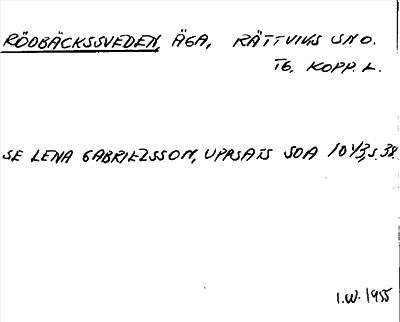 RÖDBÄCKSSVEDEN, ÄGA, RÄTTVIKS SN O.
TG, KOPP. L.
SE LENA GABRIELSSON, UPPSATS SOA 1043, S. 38.
I.W. 1955